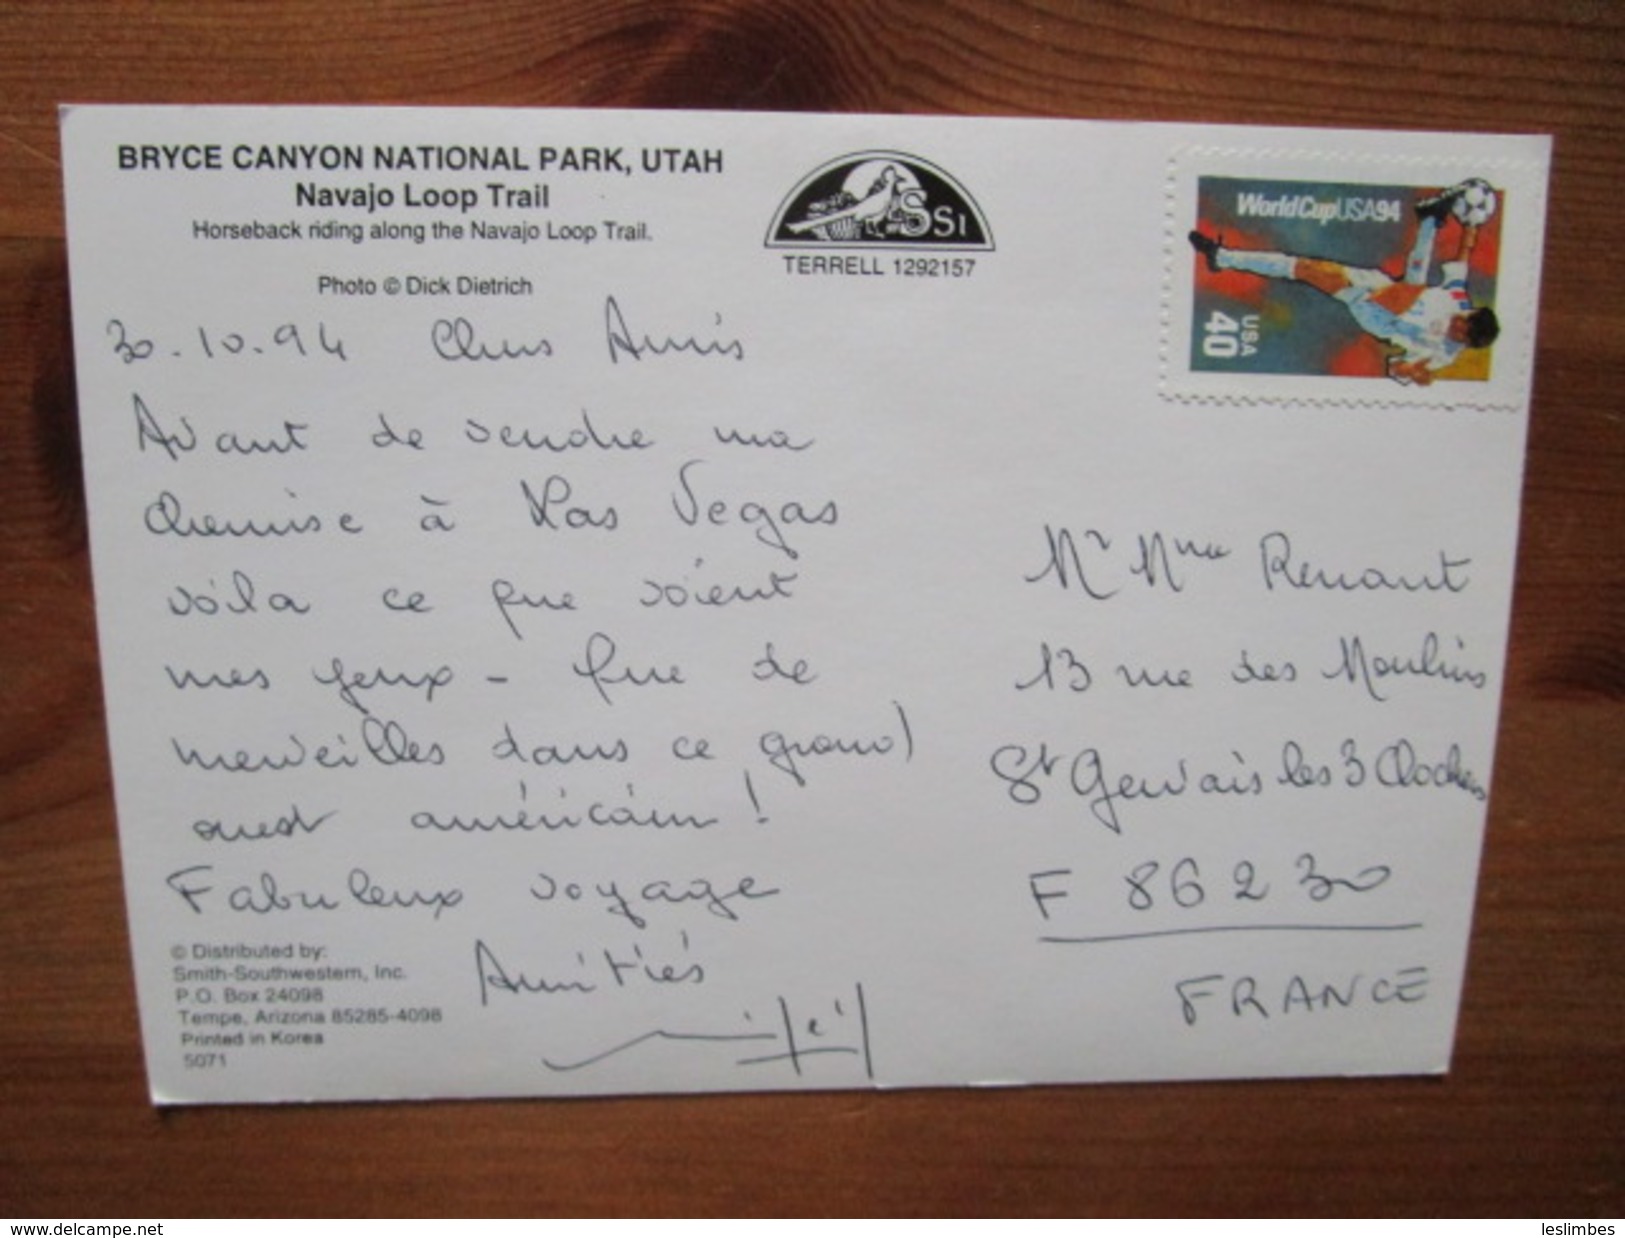 BRYCE CANYON NATIONAL PARK, UTAH
Navajo Loop Trail
Horseback riding along the Navajo Loop Trail.
Photo © Dick Dietrich
SSI
TERRELL 1292157
WorldCupUSA94
USA
40
30.10.94 Chers Amis
Avant de vendre ma
chemise à Las Vegas
voila ce que voient
mes yeux - Que de
merveilles dans ce grand
ouest américain !
Fabuleux voyage
Amitiés
© Distributed by:
Smith-Southwestern, Inc.
P.O. Box 24098
Tempe, Arizona 85285-4098
Printed in Korea
5071
Mr Mme Renant
13 rue des Moulins
St Gervais les 3 Clochers
F 86230
FRANCE
www.delcampe.net
leslimbes